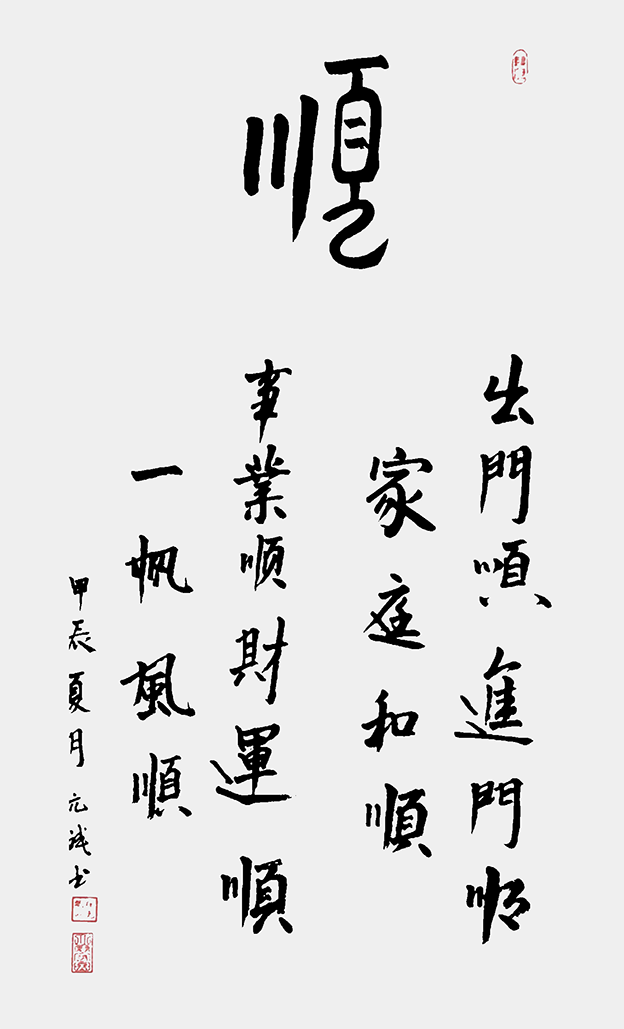 順
出門順進門順
家庭和順
事業順財運順
一帆風順
甲辰夏月元斌書